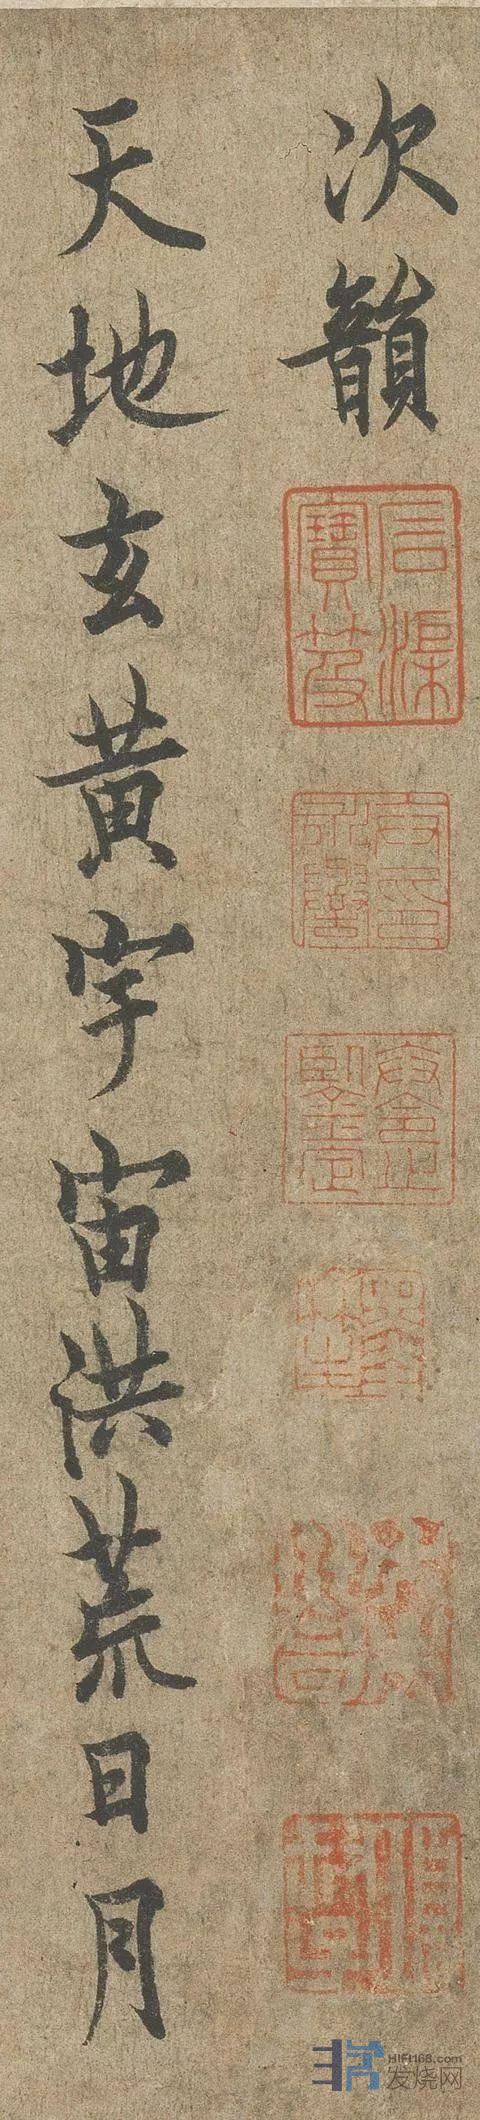 次韻
石渠寶笈
天地玄黃宇宙洪荒日月
HIFI168.com
发烧网